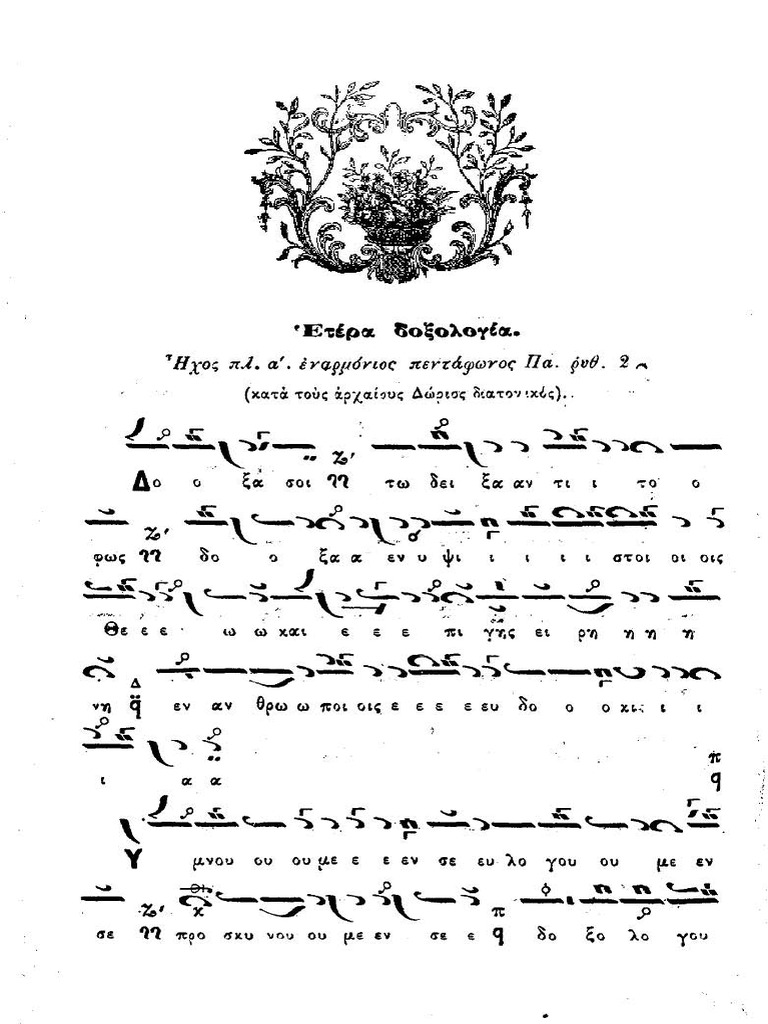 Ἑτέρα δοξολογία.
Ἦχος πλ. α'. ἐναρμόνιος πεντάφωνος Πα. ρυθ. 2
(κατὰ τοὺς ἀρχαίους Δώριος διατονικός).
Δο ο ξα σοι τω δει ξα αν τι ι το ο
φως δο ο ξα α εν υ ψι ι ι ι ι στοι οι οις
Θε ε ε ω ω και ε ε ε πι γης ει ρη η η η
νη εν αν θρω ω ποι οις ε ε ε ε ευ δο ο ο κι ι ι
ι α α
Υ μνου ου ου με ε ε εν σε ευ λο γου ου με εν
σε προ σκυ νου ου με εν σε ε δο ξο λο γου